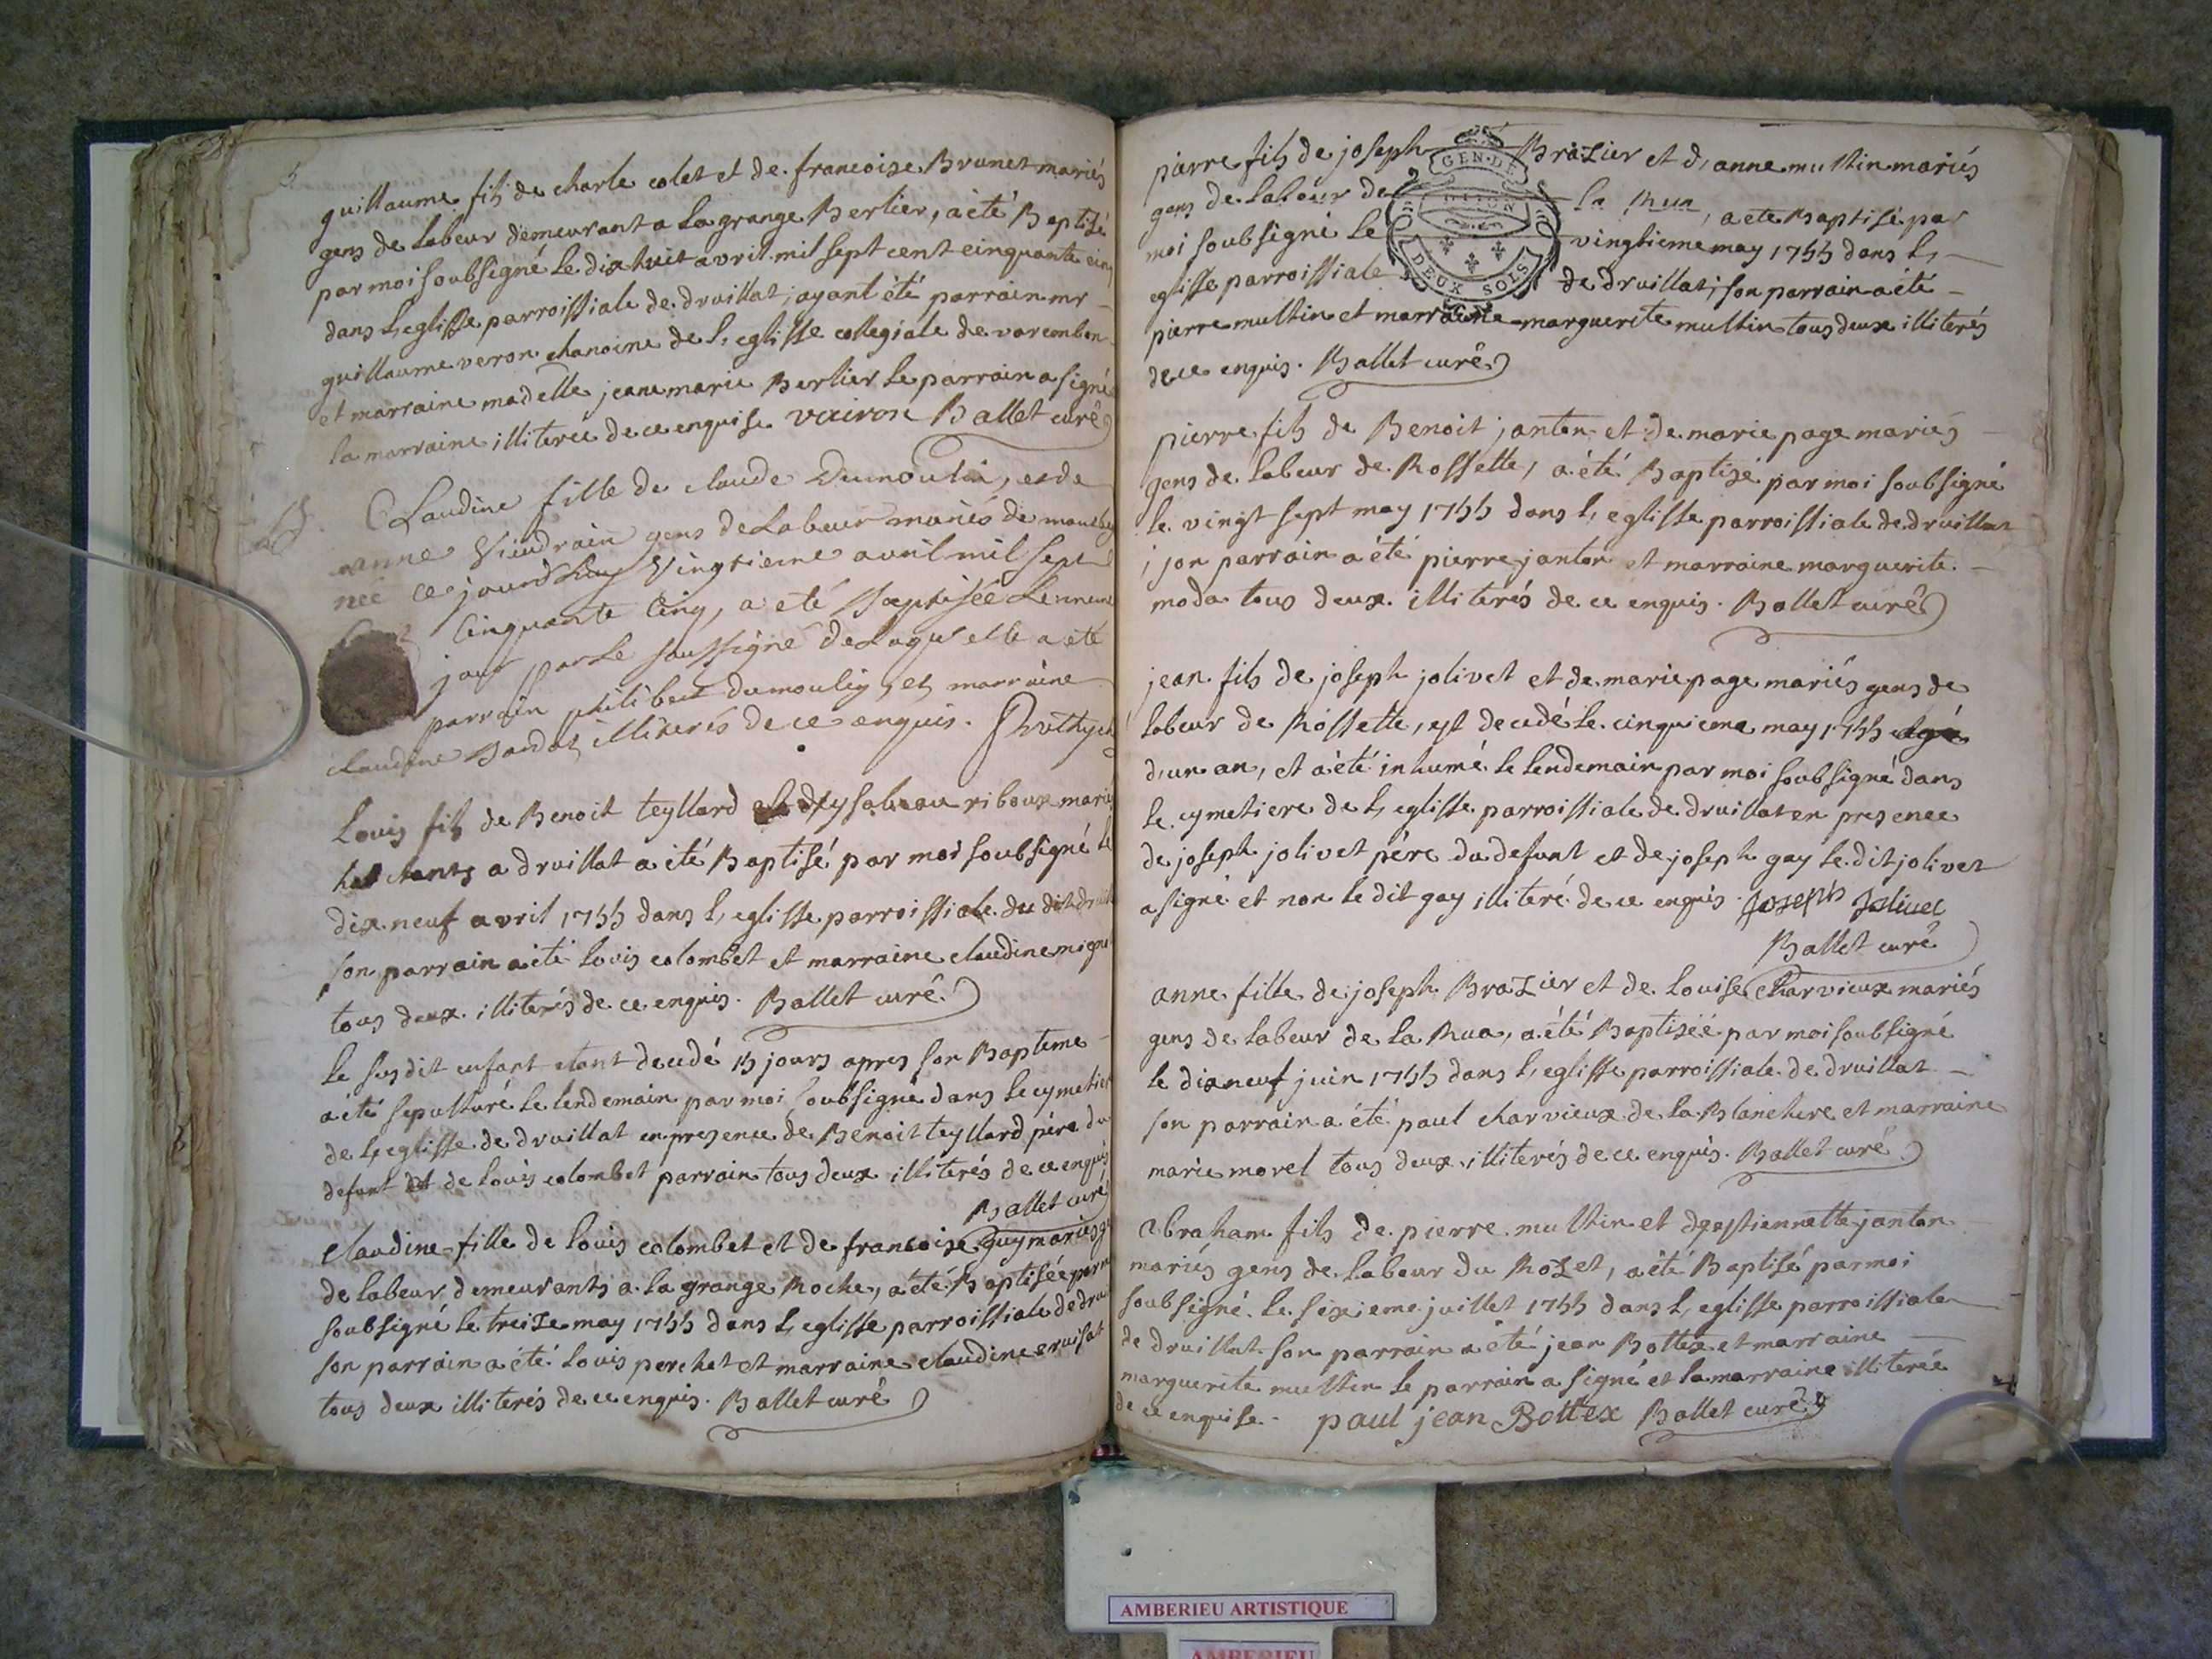 guillaume fils de charle colet et de francoise Brunet mariés
gens de labeur demeurant a la grange Berlier, a été Baptisé
par moi soubsigné le dix huit avril mil sept cent cinquante cinq
dans l, eglisse parroissiale de druillat; ayant été parrain mr
guillaume veron chanoine de l, eglisse collegiale de varembon
et marraine madelle jeane marie Berlier le parrain a signé
la marraine illiterée de ce enquise vairon Ballet curé
Claudine fille de claude Dumoulin, et de
anne Vieudrain gens de Labeur mariés de
née ce jourdhuy Vingtieme avril mil sept
cinquante cinq, a eté Baptisée
jour par Le soussigné de Laquelle a eté
parrain philibert dumoulin, et marraine
claudine illiterés de ce enquis.
Louis fils de Benoit teyllard riboux mariés
a druillat a été Baptisé par moi soubsigné le
dix neuf avril 1755 dans l, eglisse parroissiale du dit
son parrain a été Louis colombet et marraine claudine
tous deux illiterés de ce enquis. Ballet curé
Le susdit enfant etant decedé 15 jours apres son Bapteme
a été sepulturé le lendemain par moi soubsigné dans le cymetiere
de l, eglisse de druillat en presence de Benoit teyllard pére du
defunt et de louis colombet parrain tous deux illiterés de ce enquis
Ballet curé
claudine fille de louis colombet et de francoise guy mariés
de labeur demeurants a la grange Roche, a été Baptisée par
soubsigné le treize may 1755 dans l, eglisse parroissiale de
son parrain a été Louis perchet et marraine claudine
tous deux illiterés de ce enquis. Ballet curé
pierre fils de joseph Brazier et d, anne multin mariés
gens de labeur de la Rua, a été Baptisé par
moi soubsigné le vingtieme may 1755 dans l,
eglisse parroissiale de druillat; son parrain a été
pierre multin et marraine marguerite multin tous deux illiterés
de ce enquis. Ballet curé
GEN. D
DEUX SOLS
pierre fils de Benoit janton et de marie page mariés
gens de labeur de Rossette, a été Baptizé par moi soubsigné
le vingt sept may 1755 dans l, eglisse parroissiale de druillat
; son parrain a été pierre janton et marraine marguerite
moda tous deux illiterés de ce enquis. Ballet curé
jean fils de joseph jolivet et de marie page mariés gens de
labeur de Rossette, est decedé le cinquieme may 1755
d, un an, et a été inhumé le lendemain par moi soubsigné dans
le cymetiere de l, eglisse parroissiale de druillat en presence
de joseph jolivet pére du defunt et de joseph gay le dit jolivet
a signé et non le dit gay illiteré de ce enquis. Joseph Jolivet
Ballet curé
anne fille de joseph Brazier et de Louise charvieux mariés
gens de labeur de la Rua, a été Baptizée par moi soubsigné
le dix neuf juin 1755 dans l, eglisse parroissiale de druillat
son parrain a été paul charvieux de la Blanchere et marraine
marie morel tous deux illiterés de ce enquis. Ballet curé
abraham fils de pierre multin et d, estiennette janton
mariés gens de labeur du Rozet, a été Baptisé par moi
soubsigné le sixieme juillet 1755 dans l, eglisse parroissiale
de druillat son parrain a été jean Bottex et marraine
marguerite multin le parrain a signé et la marraine illiterée
de ce enquise. paul jean Bottex Ballet curé
AMBERIEU ARTISTIQUE
AMBERIEU